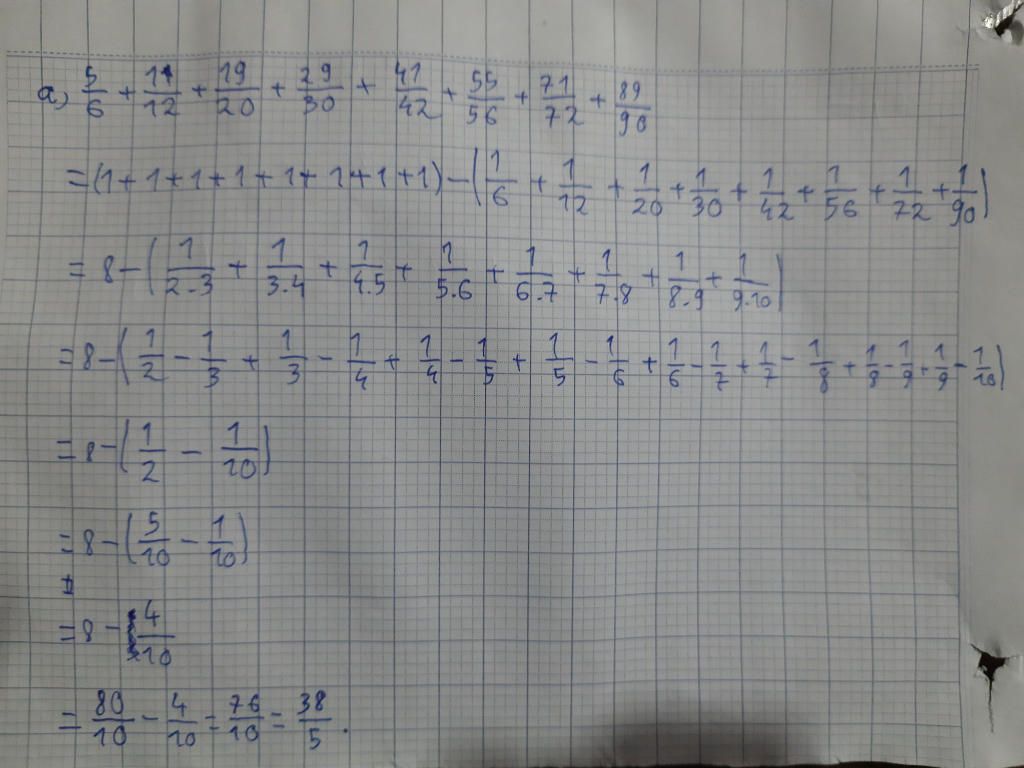 a, 5/6 + 11/12 + 19/20 + 29/30 + 41/42 + 55/56 + 71/72 + 89/90
= (1 + 1 + 1 + 1 + 1 + 1 + 1 + 1) - (1/6 + 1/12 + 1/20 + 1/30 + 1/42 + 1/56 + 1/72 + 1/90)
= 8 - (1/2.3 + 1/3.4 + 1/4.5 + 1/5.6 + 1/6.7 + 1/7.8 + 1/8.9 + 1/9.10)
= 8 - (1/2 - 1/3 + 1/3 - 1/4 + 1/4 - 1/5 + 1/5 - 1/6 + 1/6 - 1/7 + 1/7 - 1/8 + 1/8 - 1/9 + 1/9 - 1/10)
= 8 - (1/2 - 1/10)
= 8 - (5/10 - 1/10)
= 8 - 4/10
= 80/10 - 4/10 = 76/10 = 38/5.